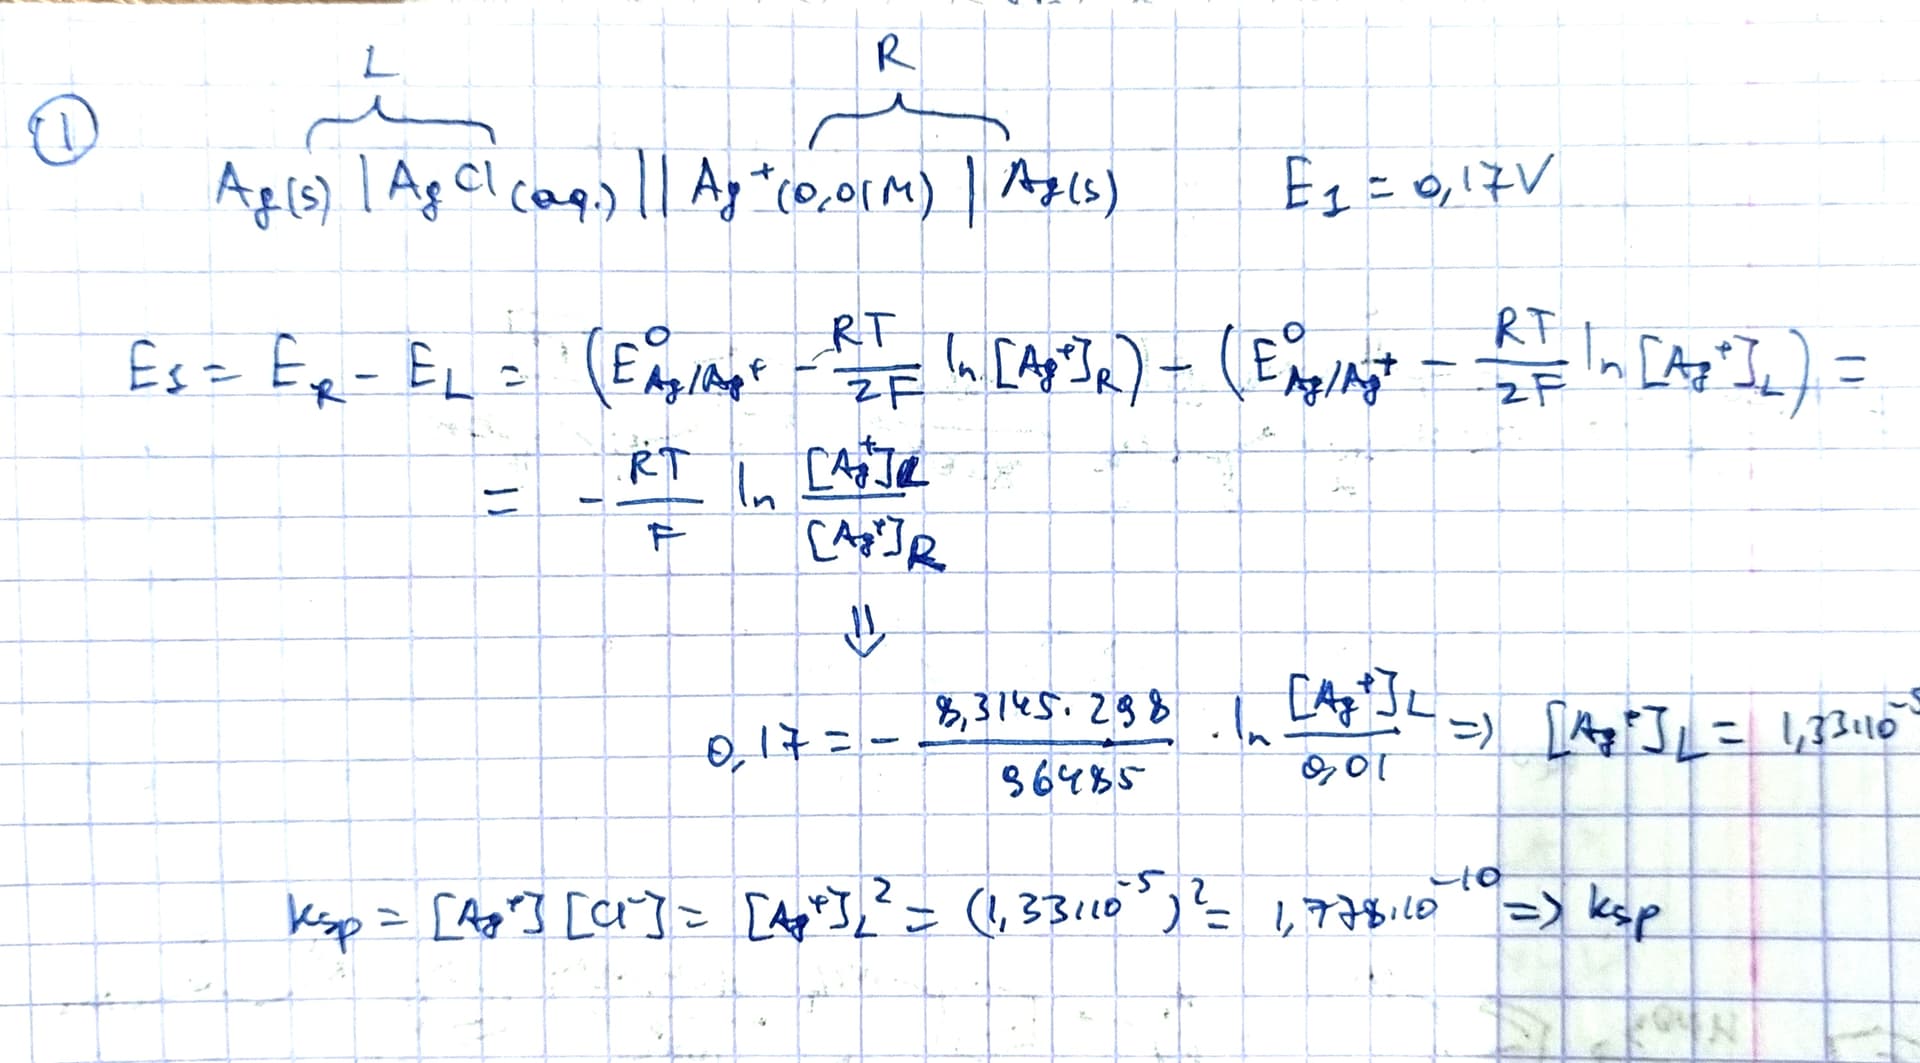 L R
① Ag(s) | AgCl (aq.) || Ag⁺(0,01M) | Ag(s) E₁ = 0,17V
E₁ = E_R - E_L = (E⁰_Ag/Ag⁺ - RT/zF ln [Ag⁺]_R) - (E⁰_Ag/Ag⁺ - RT/zF ln [Ag⁺]_L) =
= - RT/F ln [Ag⁺]_L/[Ag⁺]_R
⇓
0,17 = - 8,3145·298/96485 · ln [Ag⁺]_L/0,01 => [Ag⁺]_L = 1,33·10⁻⁵
Ksp = [Ag⁺][Cl⁻] = [Ag⁺]_L² = (1,33·10⁻⁵)² = 1,778·10⁻¹⁰ => Ksp